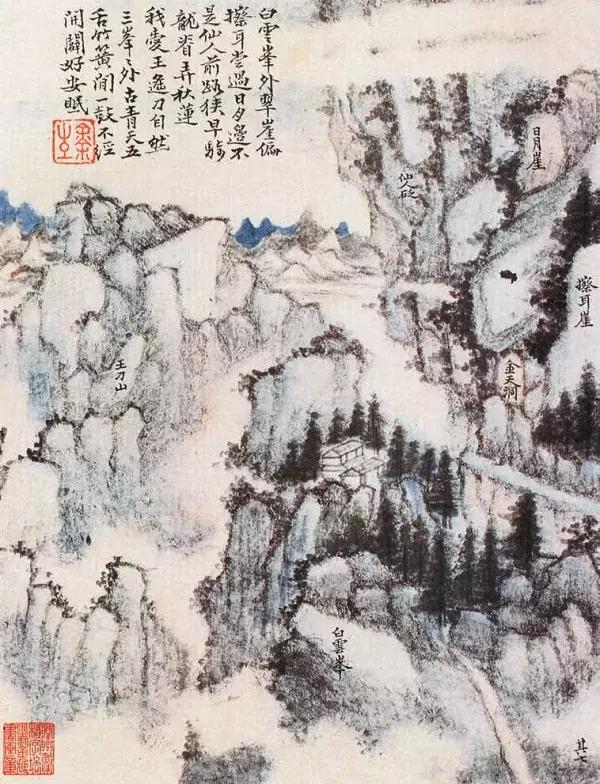 白雲峯外翠崖偏
擦耳過日邊不
是仙人前路狹早騎
龍脊弄秋蓮
我愛王刀自然
三峯々外古青天五
舌竹簧間一鼓不
開關好安眠
日月崖
仙人砭
擦耳崖
金天洞
王刀山
白雲峯
其七